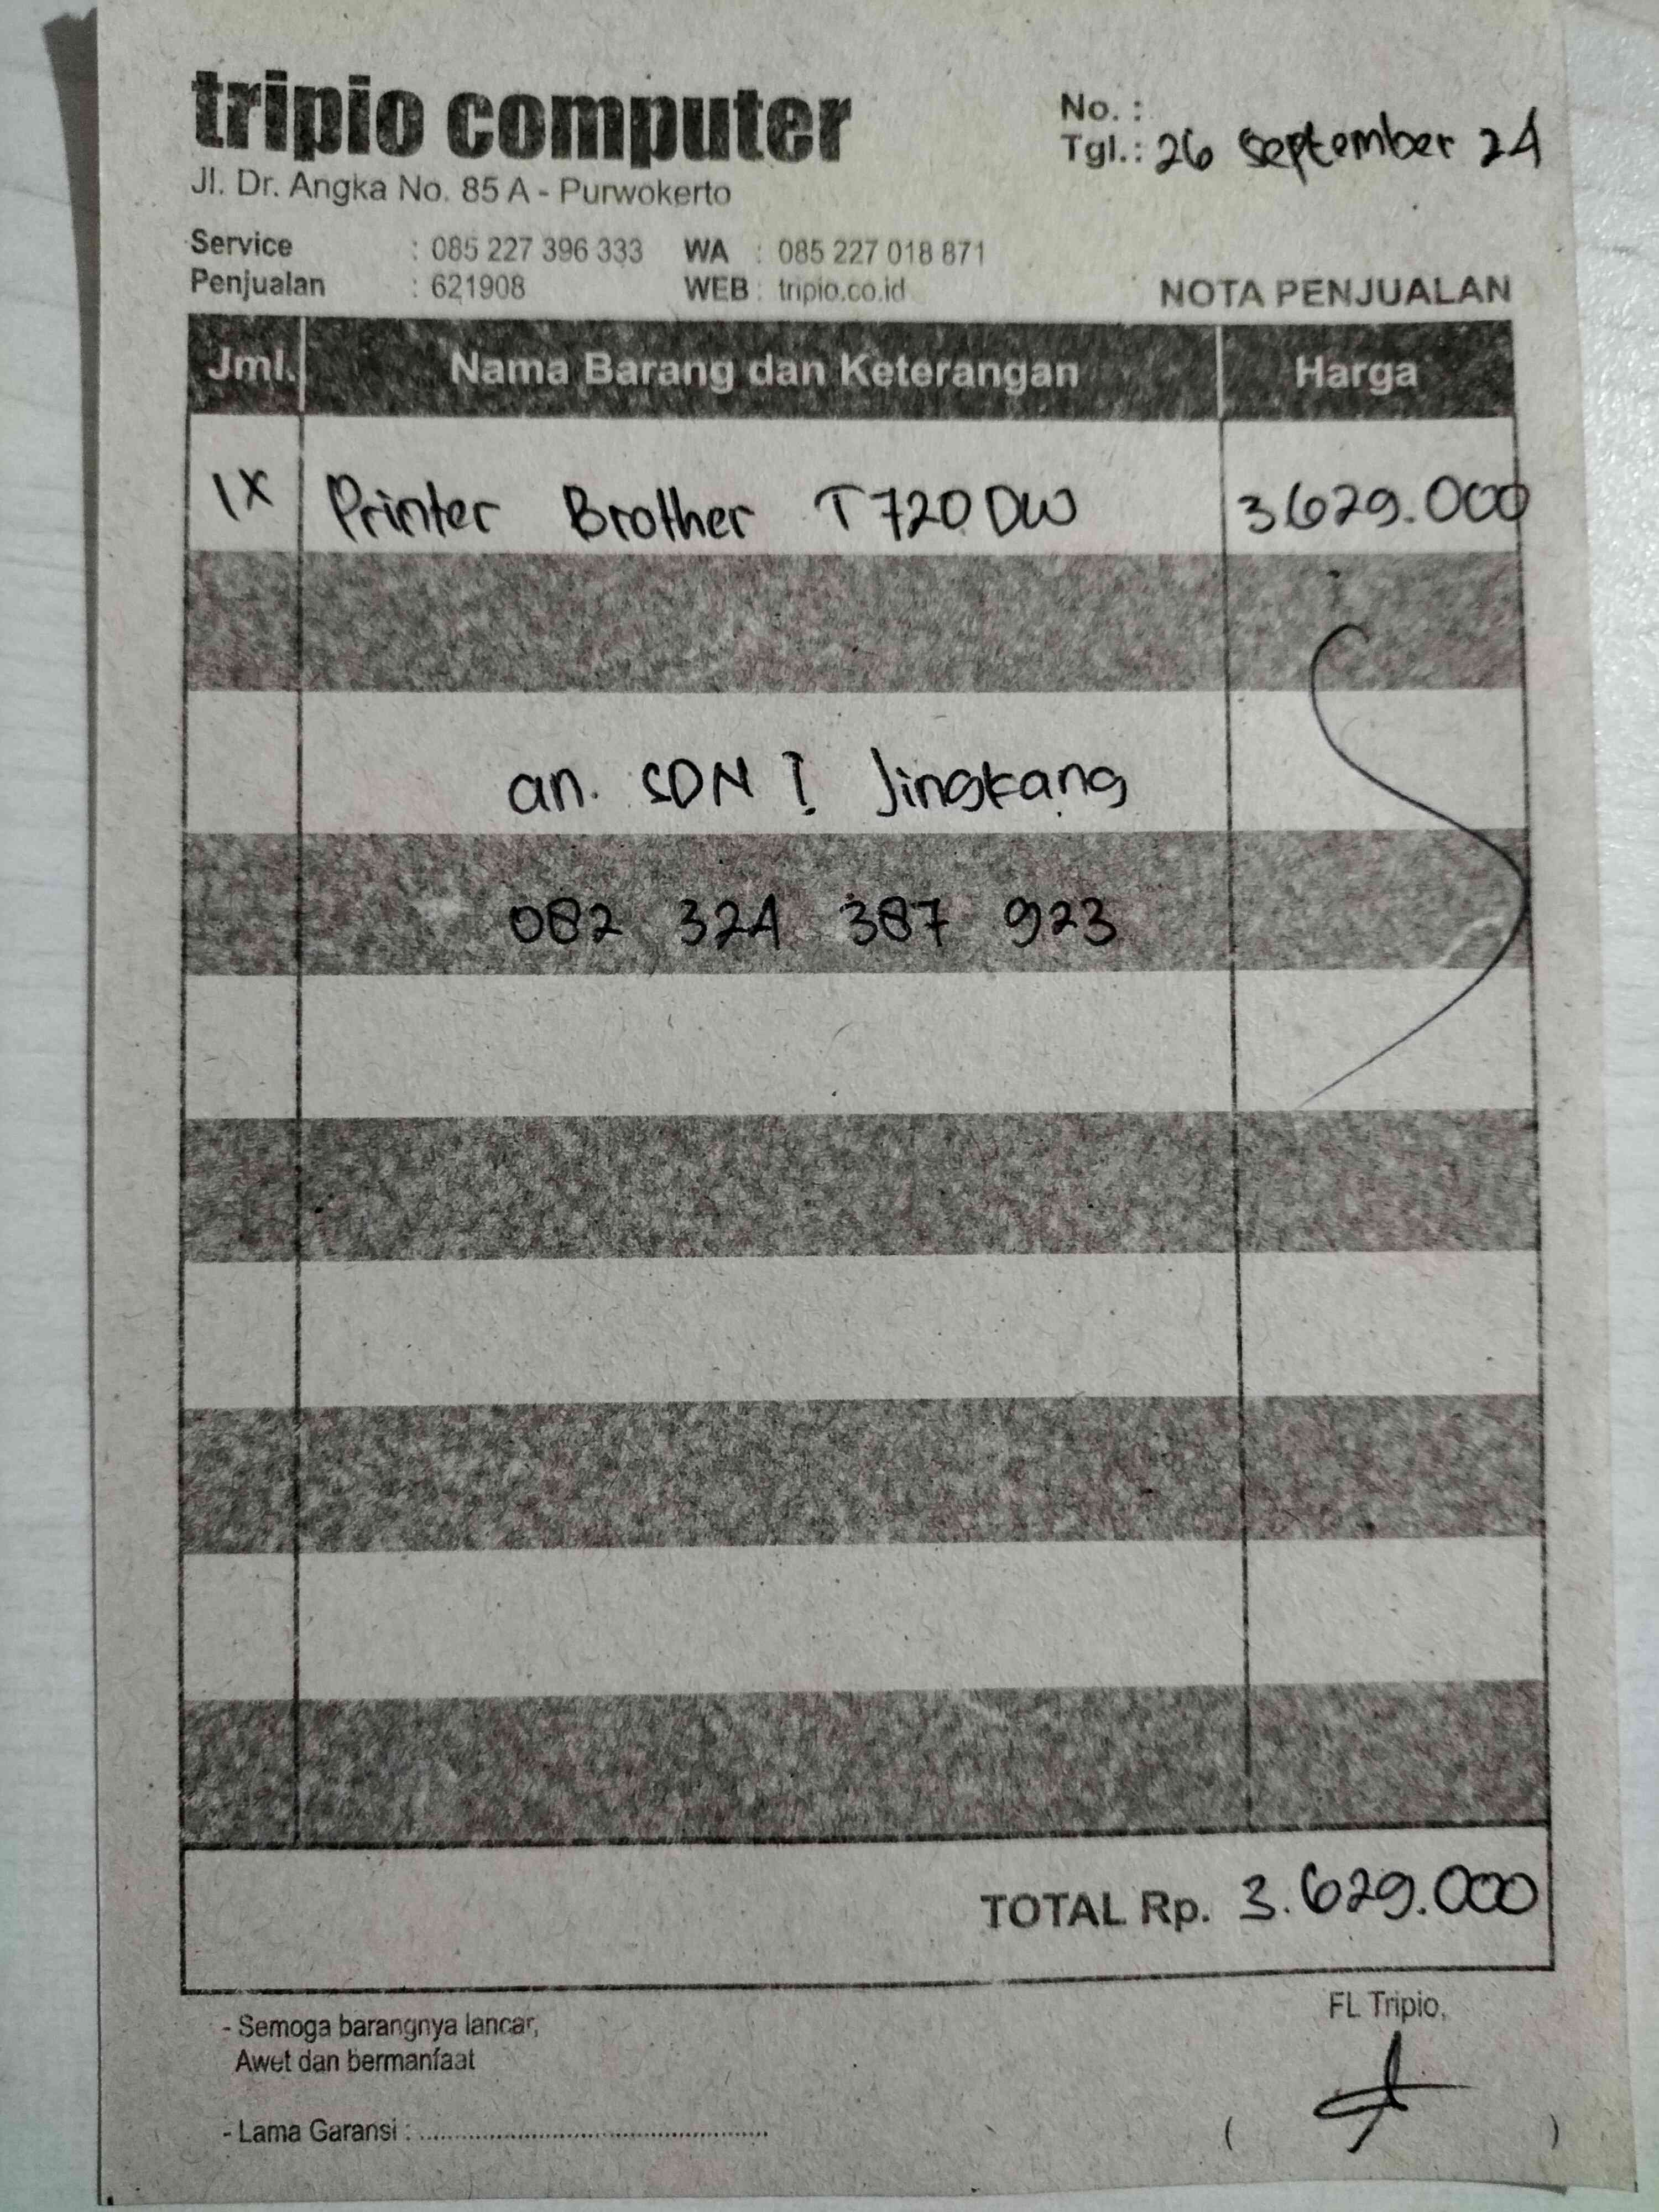 tripio computer
Jl. Dr. Angka No. 85 A - Purwokerto
No. :
Tgl.: 26 September 24
Service : 085 227 396 333 WA : 085 227 018 871
Penjualan : 621908 WEB : tripio.co.id
NOTA PENJUALAN
Jml. Nama Barang dan Keterangan Harga
1X Printer Brother T720DW 3.629.000
an. SDN I Jingkang
082 324 387 923
TOTAL Rp. 3.629.000
- Semoga barangnya lancar,
Awet dan bermanfaat
- Lama Garansi : ........................................
FL Tripio,
( )